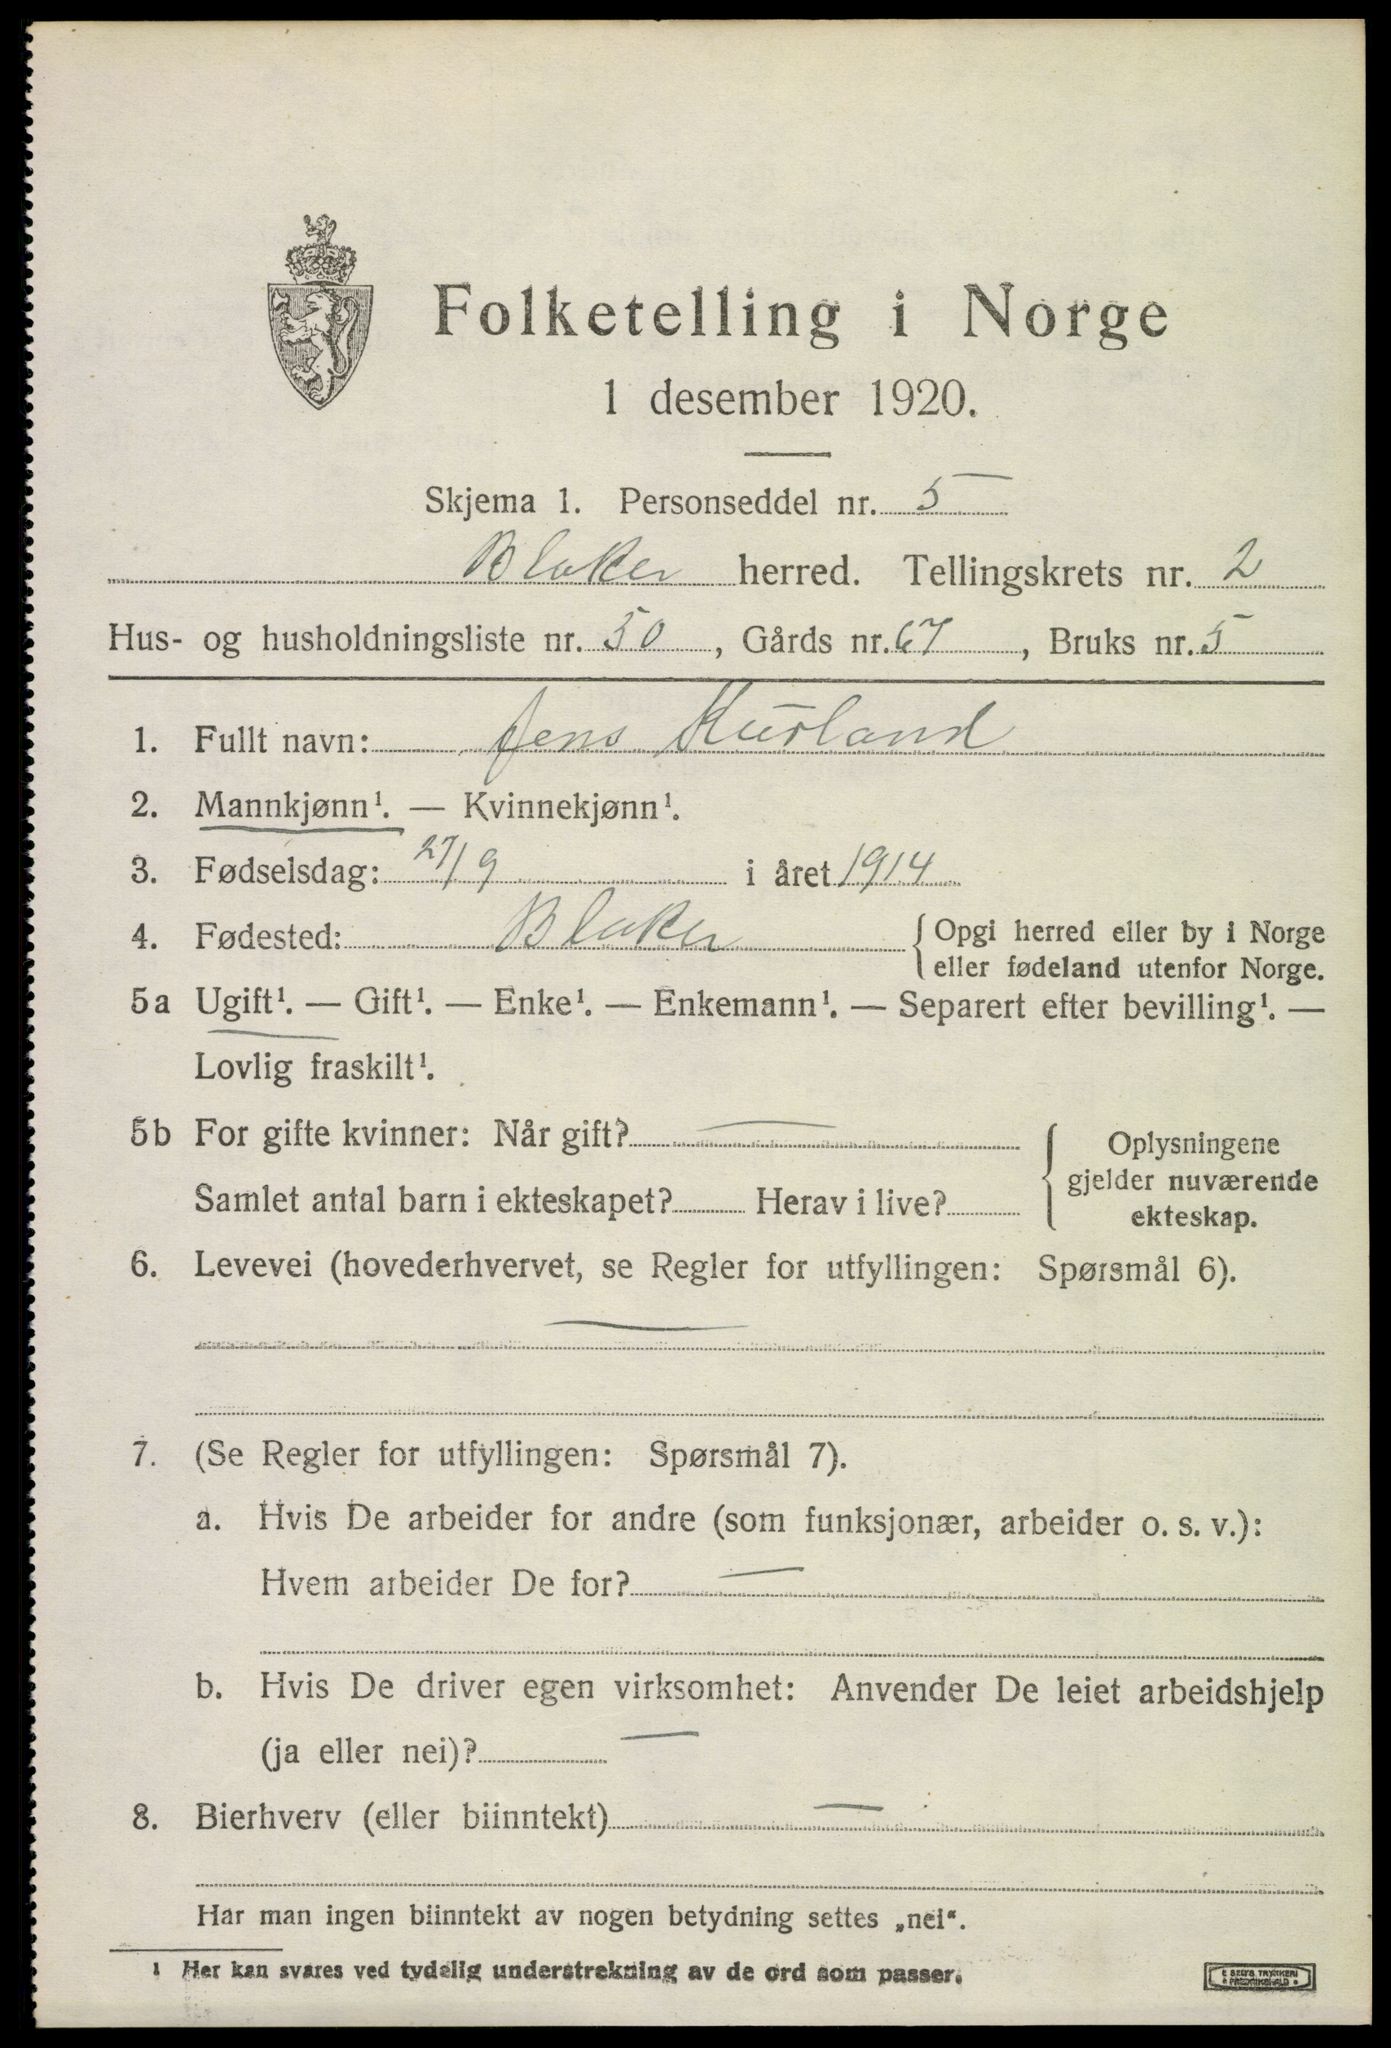 Folketelling i Norge
1 desember 1920.
Skjema 1. Personseddel nr. 5
Blaker herred. Tellingskrets nr. 2
Hus- og husholdningsliste nr. 50, Gårds nr. 67, Bruks nr. 5
1. Fullt navn: Jens Kurland
2. Mannkjønn¹. — Kvinnekjønn¹.
3. Fødselsdag: 27/9 i året 1914
4. Fødested: Blaker { Opgi herred eller by i Norge
eller fødeland utenfor Norge.
5a Ugift¹. — Gift¹. — Enke¹. — Enkemann¹. — Separert efter bevilling¹. —
Lovlig fraskilt¹.
5b For gifte kvinner: Når gift? —
Samlet antal barn i ekteskapet? Herav i live?
{ Oplysningene
gjelder nuværende
ekteskap.
6. Levevei (hovederhvervet, se Regler for utfyllingen: Spørsmål 6).
—
7. (Se Regler for utfyllingen: Spørsmål 7).
a. Hvis De arbeider for andre (som funksjonær, arbeider o. s. v.):
Hvem arbeider De for? —
b. Hvis De driver egen virksomhet: Anvender De leiet arbeidshjelp
(ja eller nei)? —
8. Bierhverv (eller biinntekt) —
Har man ingen biinntekt av nogen betydning settes „nei“.
¹ Her kan svares ved tydelig understrekning av de ord som passer.
E SELYS TRYKKERI
FREDRIKSHALD